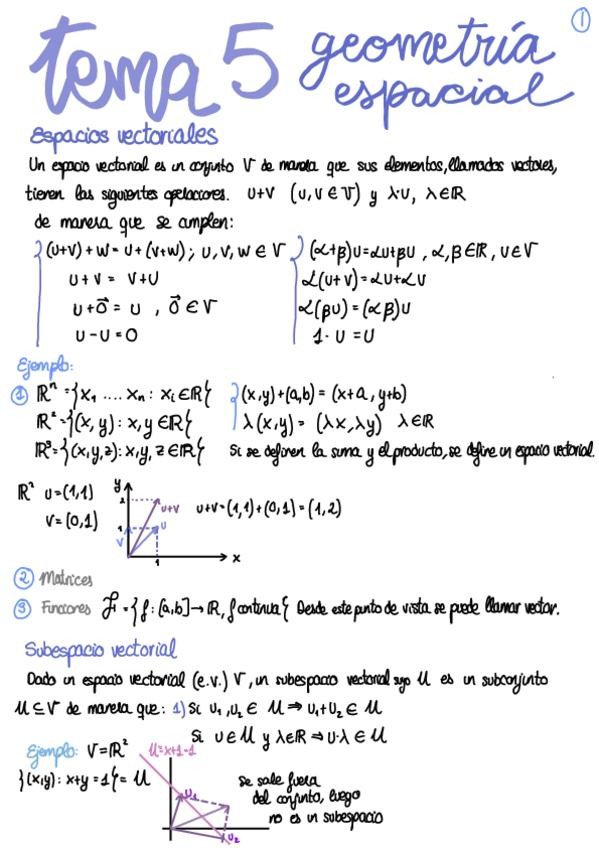 1
tema 5 geometría
espacial
Espacios vectoriales
Un espacio vectorial es un conjunto V de manera que sus elementos, llamados vectores,
tienen las siguientes operaciones. u+v (u, v ∈ V) y λ·u, λ∈ℝ
de manera que se amplen:
(u+v)+w = u+(v+w); u, v, w ∈ V
u+v = v+u
u+0⃗ = u , 0⃗ ∈ V
u-u=0
(α+β)u=αu+βu , α, β∈ℝ, u∈V
α(u+v)=αu+αv
α(βu)=(αβ)u
1·u=u
Ejemplo:
1 ℝⁿ={x₁ .... xₙ: xᵢ∈ℝ}
ℝ²={(x,y): x,y∈ℝ}
ℝ³={(x,y,z): x,y,z∈ℝ}
(x,y)+(a,b) = (x+a, y+b)
λ(x,y) = (λx,λy) λ∈ℝ
Si se definen la suma y el producto, se define un espacio vectorial.
ℝ² u=(1,1)
v=(0,1)
y
2
1
v
u+v
u
1
x
u+v=(1,1)+(0,1)=(1,2)
2 Matrices
3 Funciones F={f:[a,b]→ℝ, f continua} Desde este punto de vista se puede llamar vector.
Subespacio vectorial
Dado un espacio vectorial (e.v.) V, un subespacio vectorial suyo U es un subconjunto
U⊆V de manera que: 1) Si u₁,u₂∈ U ⇒ u₁+u₂ ∈ U
Si u∈U y λ∈ℝ ⇒ u·λ ∈ U
Ejemplo: V=ℝ²
{(x,y): x+y=1}= U
u₁
u₂
se sale fuera
del conjunto, luego
no es un subespacio